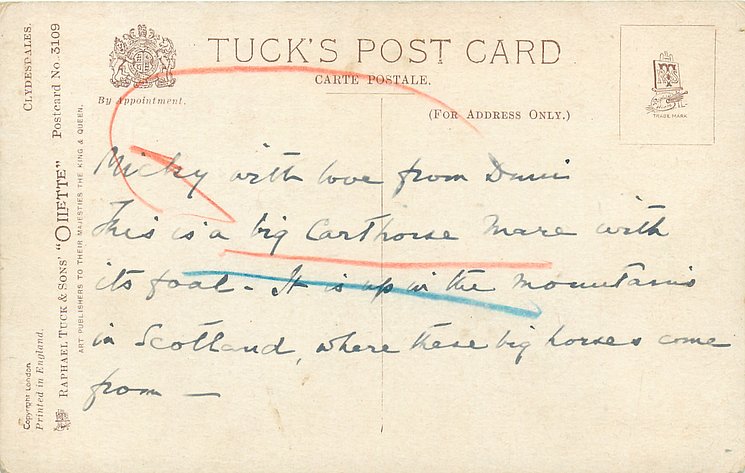 TUCK'S POST CARD
CARTE POSTALE.
By Appointment.
(FOR ADDRESS ONLY.)
TRADE MARK
CLYDESDALES.
Postcard No. 3109
RAPHAEL TUCK & SONS' "OILETTE"
ART PUBLISHERS TO THEIR MAJESTIES THE KING & QUEEN.
Copyright London
Printed in England.
Micky with love from
This is a big Carthorse Mare with
its foal - It is up in the mountains
in Scotland, where these big horses come
from —